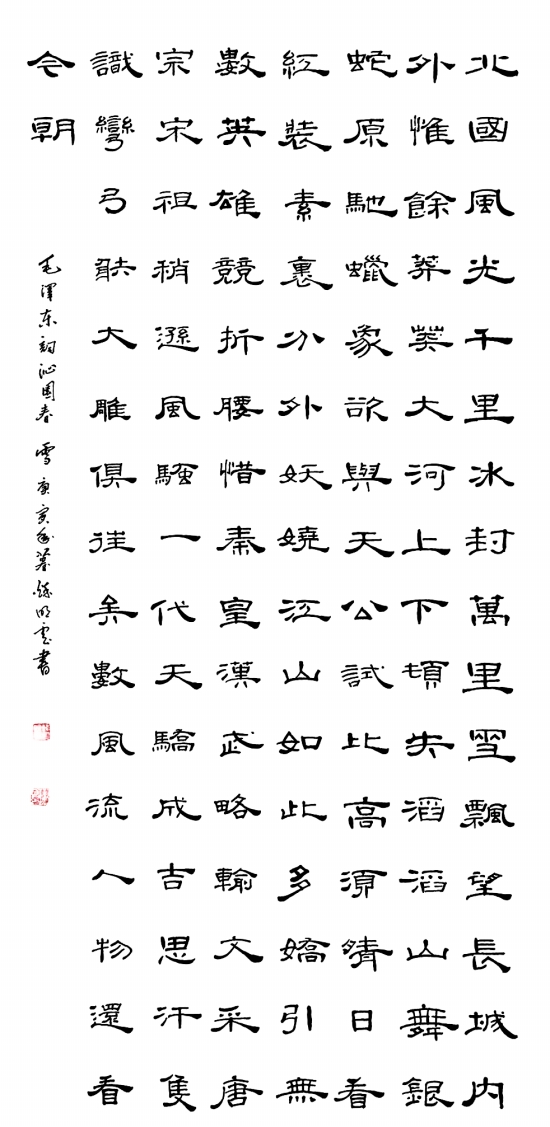 北國風光千里冰封萬里雪飄望長城内
外惟餘莽莽大河上下頓失滔滔山舞銀
蛇原馳蠟象欲與天公試比高須晴日看
紅裝素裹分外妖嬈江山如此多嬌引無
數英雄競折腰惜秦皇漢武略輸文采唐
宗宋祖稍遜風騷一代天驕成吉思汗隻
識彎弓射大雕俱往矣數風流人物還看
今朝
毛澤东詞沁園春 雪 庚寅 暮 明雲書